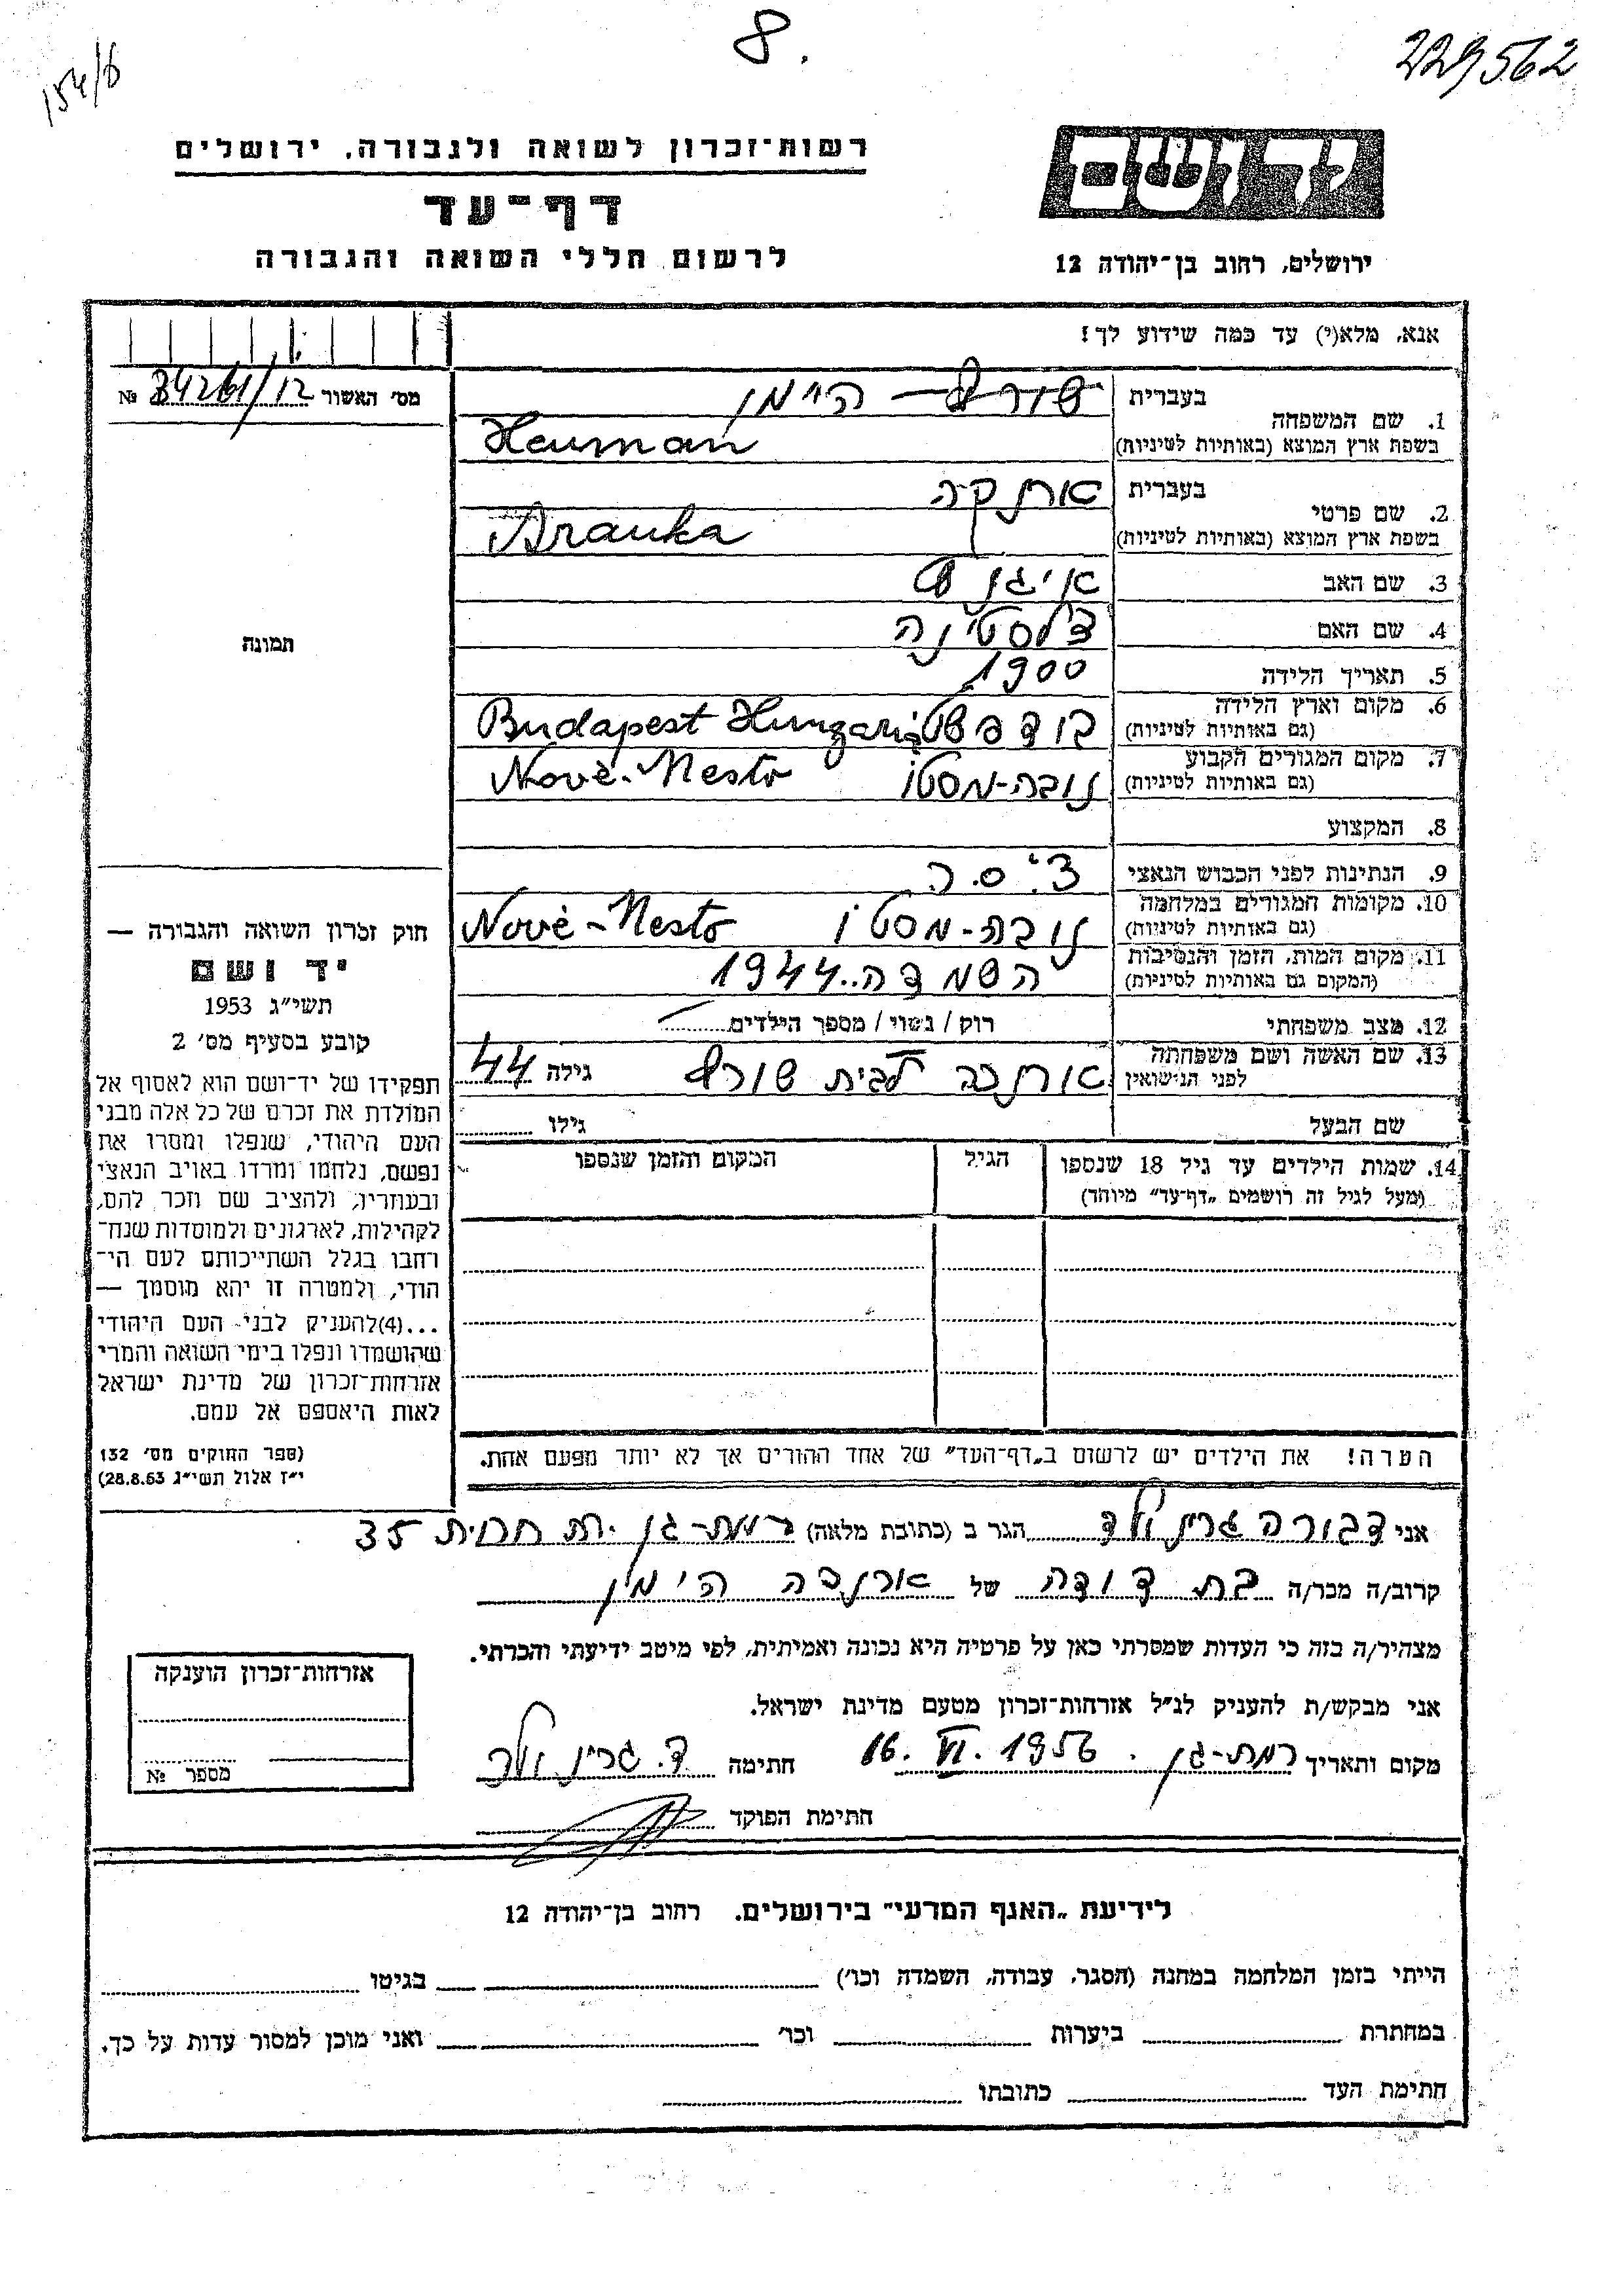 8.
229562
154/6
רשות־זכרון לשואה ולגבורה, ירושלים
דף־עד
לרשום חללי השואה והגבורה
יד ושם
ירושלים, רחוב בן־יהודה 12
אנא, מלא(י) עד כמה שידוע לך!
מס׳ האשור 34261/12 №
תמונה
1. שם המשפחה
בעברית שורץ – היימן
בשפת ארץ המוצא (באותיות לטיניות) Heuman
2. שם פרטי
בעברית ארנקה
בשפת ארץ המוצא (באותיות לטיניות) Aranka
3. שם האב איגנץ
4. שם האם צ׳לסטינה
5. תאריך הלידה 1900
6. מקום וארץ הלידה
(גם באותיות לטיניות) בודפשט Budapest Hungaria
7. מקום המגורים הקבוע
(גם באותיות לטיניות) נובה-מסטו Nové-Mesto
8. המקצוע
9. הנתינות לפני הכבוש הנאצי צ׳.ס.ר.
10. מקומות המגורים במלחמה
(גם באותיות לטיניות) נובה-מסטו Nové-Mesto
11. מקום המות, הזמן והנסיבות
(המקום גם באותיות לטיניות) השמדה..1944
12. מצב משפחתי רוק / נשוי / מספר הילדים
13. שם האשה ושם משפחתה
לפני הנישואין לבית שורץ גילה 44
שם הבעל גילו
14. שמות הילדים עד גיל 18 שנספו הגיל המקום והזמן שנספו
(מעל לגיל זה רושמים „דף־עד״ מיוחד)
הערה! את הילדים יש לרשום ב„דף־העד״ של אחד ההורים אך לא יותר מפעם אחת.
חוק זכרון השואה והגבורה —
יד ושם
תשי״ג 1953
קובע בסעיף מס׳ 2
תפקידו של יד־ושם הוא לאסוף אל
המולדת את זכרם של כל אלה מבני
העם היהודי, שנפלו ומסרו את
נפשם, נלחמו ומרדו באויב הנאצי
ובעוזריו, ולהציב שם וזכר להם,
לקהילות, לארגונים ולמוסדות שנח־
רחבו בגלל השתייכותם לעם הי־
הודי, ולמטרה זו יהא מוסמך —
...(4)להעניק לבני העם היהודי
שהושמדו ונפלו בימי השואה והמרי
אזרחות־זכרון של מדינת ישראל
לאות היאספם אל עמם.
(ספר החוקים מס׳ 132
י״ז אלול תשי״ג 28.8.53)
אני דבורה גרינולד הגר ב (כתובת מלאה) רמת-גן 35
קרוב/ה מכר/ה בת דודה של ארנקה היימן
מצהיר/ה בזה כי העדות שמסרתי כאן על פרטיה היא נכונה ואמיתית, לפי מיטב ידיעתי והכרתי.
אני מבקש/ת להעניק לנ״ל אזרחות־זכרון מטעם מדינת ישראל.
מקום ותאריך רמת-גן. 16.VI.1956 חתימה ד. גרינולד
חתימת הפוקד
אזרחות־זכרון הוענקה
מספר №
לידיעת „האגף המדעי״ בירושלים. רחוב בן־יהודה 12
הייתי בזמן המלחמה במחנה (הסגר, עבודה, השמדה וכו׳) בגיטו
במחתרת ביערות וכו׳ ואני מוכן למסור עדות על כך.
חתימת העד כתובתו